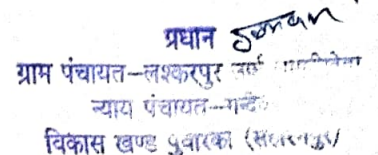 प्रधान
ग्राम पंचायत-लश्करपुर उर्फ
न्याय पंचायत-गन्दे
विकास खण्ड पुवारका (सहारनपुर)